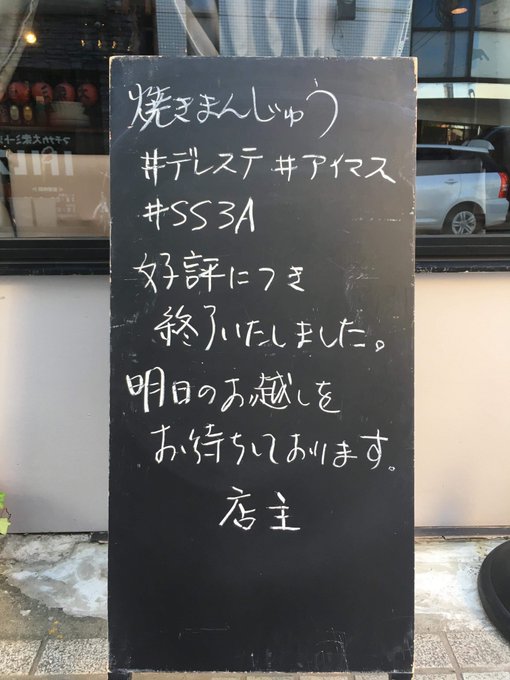 焼きまんじゅう
#デレステ #アイマス
#SS3A
好評につき
終了いたしました。
明日のお越しを
お待ちしております。
店主